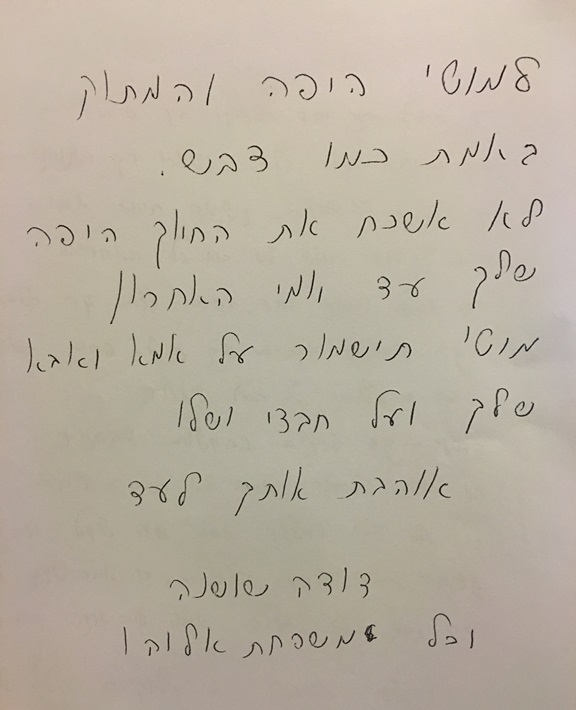 למוטי היפה והמתוק
באמת כמו דבש.
לא אשכח את החיוך היפה
שלך עד יומי האחרון
מוטי תישמור על אמא ואבא
שלך ועל חבצי ושלו
אוהבת אותך לעד
דודה שושנה
וכל משפחת אילוהו